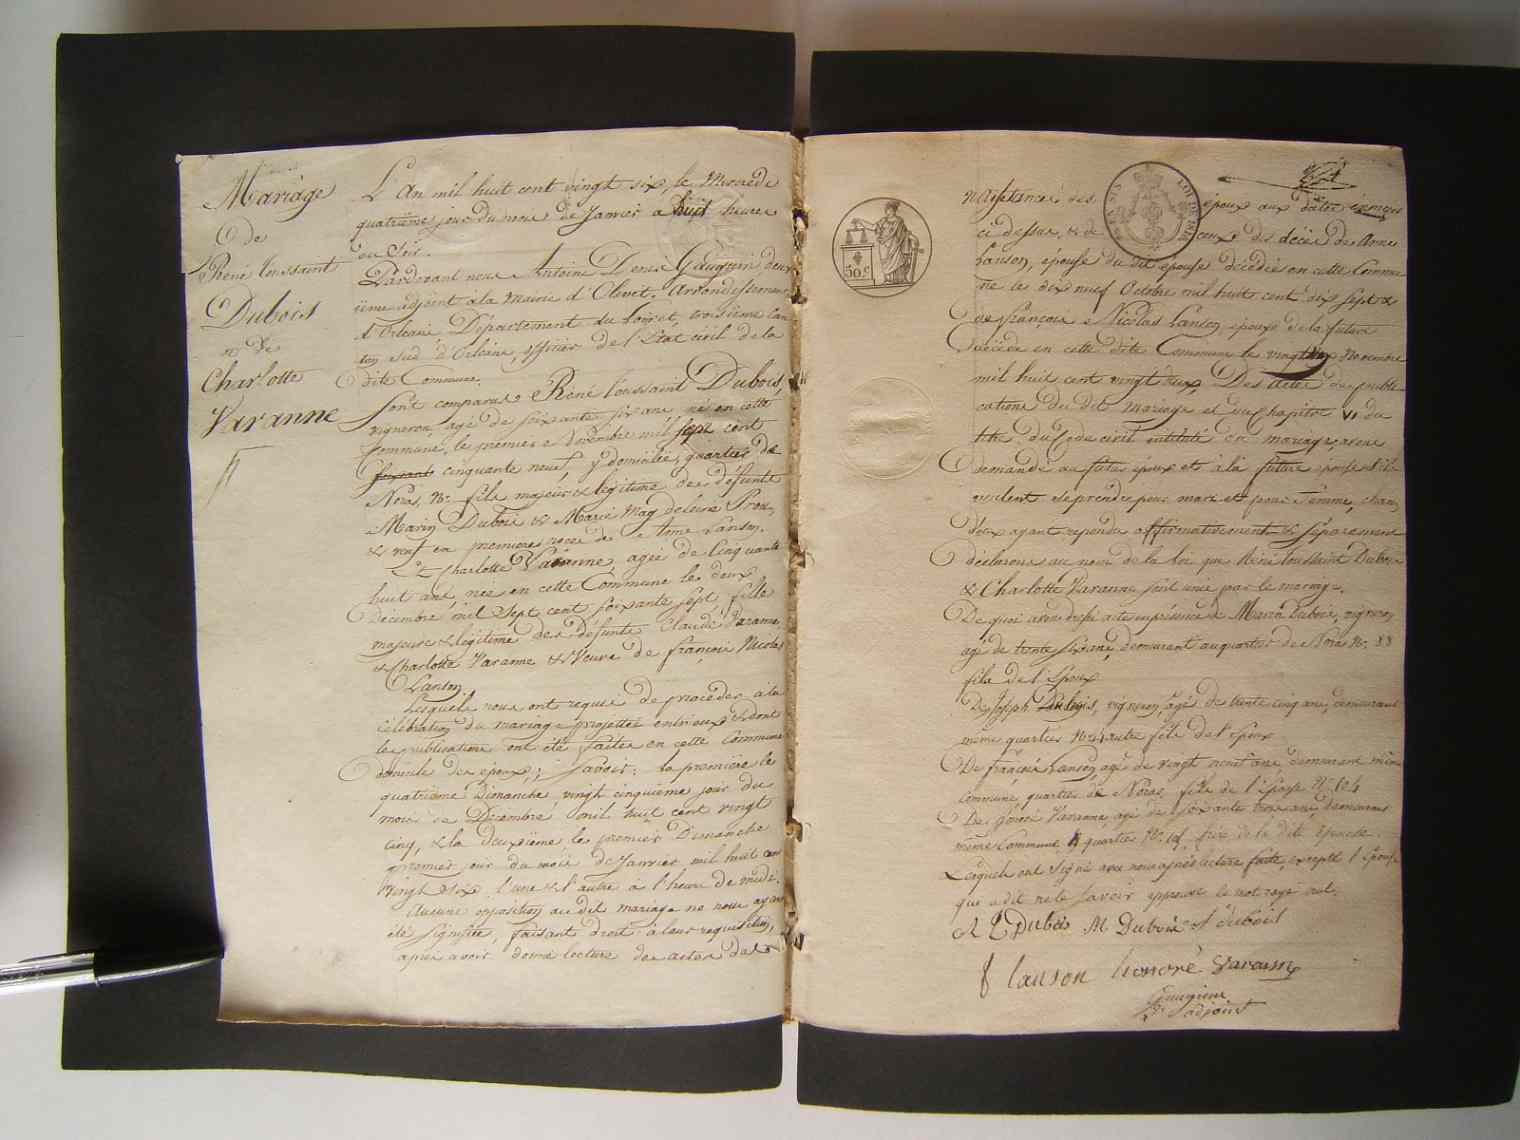 Mariage
De
René Toussaint
Dubois
& De
Charlotte
Varanne
L'An mil huit cent vingt six, le Mercredi
quatrième jour du mois de Janvier à huit heures
du soir.
Pardevant nous Antoine Denis Gauguin deux
ième adjoint à la Mairie d'Olivet, Arrondissement
d'Orléans, Département du Loiret, troisième can
ton sud d'Orléans, officier de l'Etat civil de la
dite Commune.
Sont comparus René Toussaint Dubois,
vigneron agé de soixante six ans, né en cette
Commune, le premier Novembre mil sept cent
soixante cinquante neuf, y domicilié, quartier de
Noras, No. fils majeur & légitime des défunts
Marin Dubois & Marie Magdeleine Prou,
& veuf en premieres noces de Anne Lanson.
Et Charlotte Varanne, agée de Cinquante
huit ans, née en cette Commune le deux
Décembre, mil Sept cent soixante sept, fille
majeure & légitime des défunts Claude Varanne,
& Charlotte Varanne & Veuve de françois Nicolas
Lanson.
Lesquels nous ont requis de procéder à la
Célébration du mariage projetté entr'eux & dont
les publications ont été faites en cette Commune
domicile des époux; Savoir: la première le
quatrième Dimanche, vingt cinquième jour du
mois de Décembre mil huit cent vingt
cinq, & la deuxième le premier Dimanche
premier jour du mois de Janvier mil huit cent
vingt six l'une & l'autre à l'heure de midi.
Aucune opposition au dit mariage ne nous ayant
été signifiée, faisant droit à leur requisition,
après avoir donné lecture des actes de
naissances des époux aux dates énoncés
ci dessus, & de ceux des décès de Anne
Lanson, épouse du dit époux décédée en cette Commu
ne le dix neuf Octobre mil huit cent dix sept &
de françois Nicolas Lanson, époux de la future
décédé en cette dite Commune le vingt Novembre
mil huit cent vingt deux, Des actes de publi
cations du dit mariage et du Chapitre VI du
titre du Code civil intitulé du mariage, avons
demandé au futur époux et à la future épouse s'ils
veulent se prendre pour mari et pour femme, chacun
d'eux ayant repondu affirmativement & séparement
déclarons au nom de la loi que René Toussaint Dubois
& Charlotte Varanne sont unis par le mariage.
De quoi avons dressé acte en présence de Marin Dubois, vigneron,
agé de trente six ans, demeurant au quartier de Noras No. 88
fils de l'Epoux
De Joseph Dubois, vigneron, agé de trente cinq ans, demeurant
même quartier No. autre fils de l'Epoux
De françois Lanson, agé de vingt neuf ans demeurant même
Commune, quartier de Noras, fils de l'Epouse No. 104
De honoré Varanne agé de soixante trois ans, demeurant
même Commune & quartier No. frère de la dite épouse.
Lesquels ont signé avec nous après lecture faite, excepté l'Epouse
qui a dit ne le savoir approuvé le mot rayé nul.
R T Dubois M Dubois J duboit
f lanson honoré varanne
Gauguin
adjoint
50 c.
LOI DE 1816